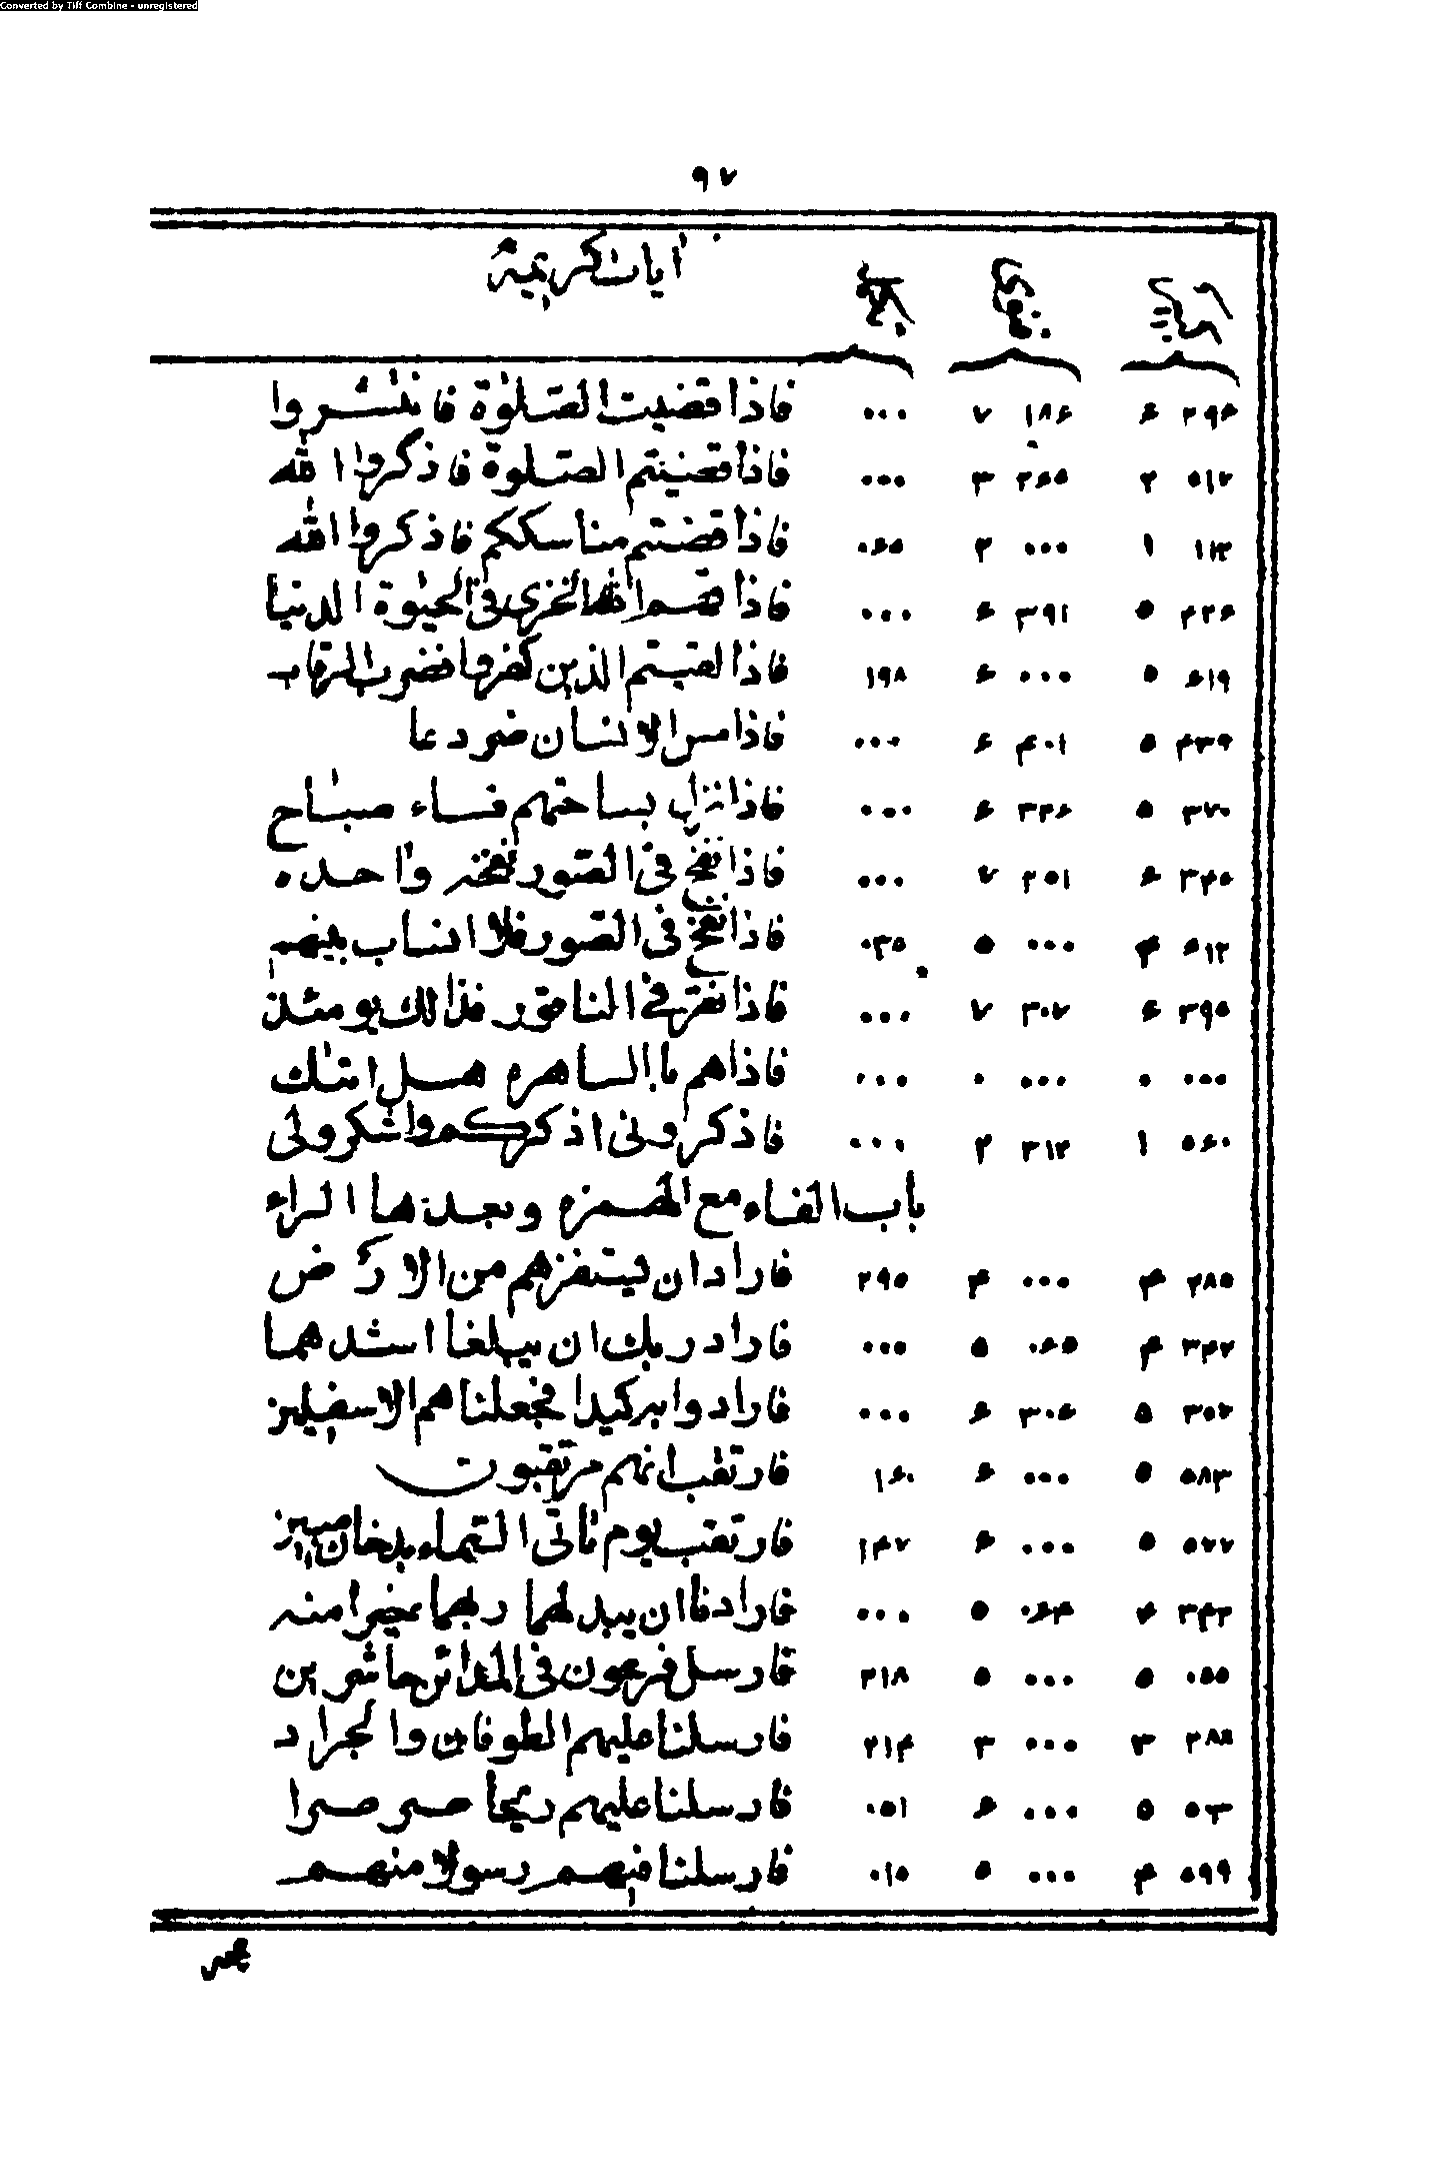 Converted by Tiff Combine - unregistered
٩٧
آيات كريمه
٢٩۶ ۶ ١٨۶ ٧ ٠٠٠ فاذا قضيت الصلوة فانتشروا
٥١٢ ٢ ٢۶٥ ٣ ٠٠٠ فاذا قضيتم الصلوة فاذكروا الله
١١٣ ١ ٠٠٠ ٢ ٠۶٥ فاذا قضيتم مناسككم فاذكروا الله
٤٢۶ ٥ ٣٩١ ۶ ٠٠٠ الله الخزى فى الحيوة الدنيا
۶١٩ ٥ ٠٠٠ ۶ ١٩٨ فاذا لقيتم الذين كفروا فضرب الرقاب
٤٣٩ ٥ ٤٠١ ۶ ٠٠٠ فاذا مس الانسان ضر دعا
٣٧٠ ٥ ٣٣۶ ۶ ٠٠٠ فاذا نزل بساحتهم فساء صباح
٣٤٥ ۶ ٢٥١ ٧ ٠٠٠ فاذا نفخ فى الصور نفخة واحده
۶١٢ ٤ ٠٠٠ ٥ ٠٣٥ فاذا نفخ فى الصور فلا انساب بينهم
٣٩٥ ۶ ٣٠٧ ٧ ٠٠٠ فاذا نقر فى الناقور فذالك يومئذ
٠٠٠ ٠ ٠٠٠ ٠ ٠٠٠ فاذا هم بالساهره هل اتيك
٥۶٠ ١ ٣١٢ ٢ ٠٠٠ فاذكرونى اذكركم واشكرولى
باب الفاء مع الهمزه وبعدها الراء
٢٨٥ ٤ ٠٠٠ ٤ ٢٩٥ فاراد ان يستفزهم من الارض
٣٤٢ ٤ ٠۶٥ ٥ ٠٠٠ فاراد ربك ان يبلغا اشدهما
٣٥٢ ٥ ٣٠۶ ۶ ٠٠٠ فارادوا به كيدا فجعلناهم الاسفلين
٥٨٣ ٥ ٠٠٠ ۶ ١۶٠ فارتقب انهم مرتقبون
٥٧٧ ٥ ٠٠٠ ۶ ١٤٧ فارتقب يوم تاتى السماء بدخان مبين
٣٤٢ ٤ ٠۶٤ ٥ ٠٠٠ فاردنا ان يبدلهما ربهما خيرا منه
٠٥٥ ٥ ٠٠٠ ٥ ٢١٨ فارسل فرعون فى المدائن حاشرين
٢٨٨ ٣ ٠٠٠ ٣ ٢١٤ فارسلنا عليهم الطوفان والجراد
٥٣ ٥ ٠٠٠ ۶ ٠٥١ فارسلنا عليهم ريحا صرصرا
٥٩٩ ٤ ٠٠٠ ٥ ٠١٥ فارسلنا فيهم رسولا منهم